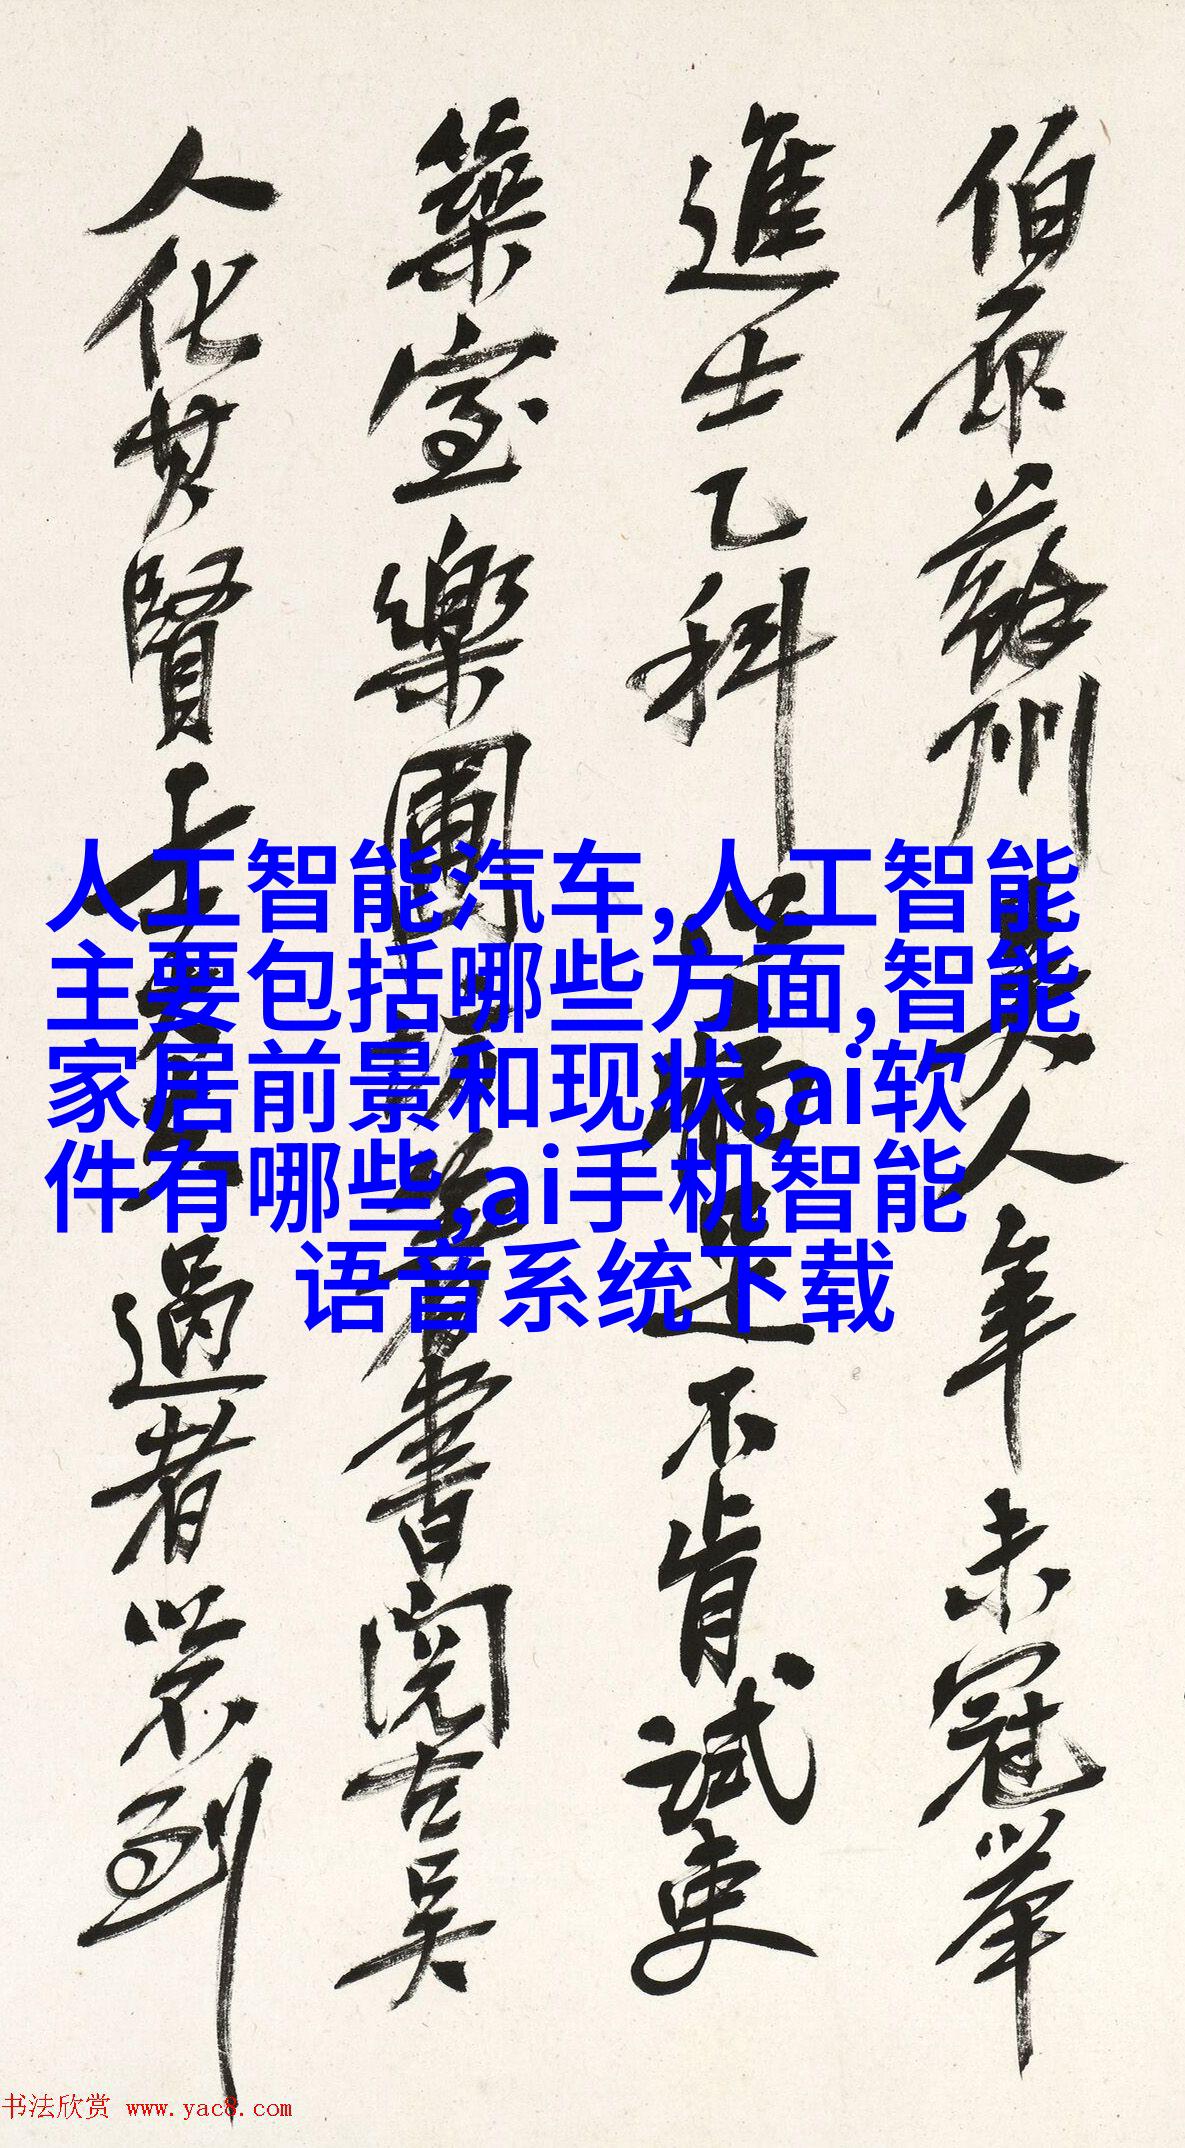 伯原蘇州吳人年未冠舉
進士乙科以病足不肯試吏
築室樂圃坊著書閱古吳
人化其賢士大夫過者以不到
人工智能汽车,人工智能
主要包括哪些方面,智能
家居前景和现状,ai软
件有哪些,ai手机智能
语音系统下载
书法欣赏 www.yac8.com